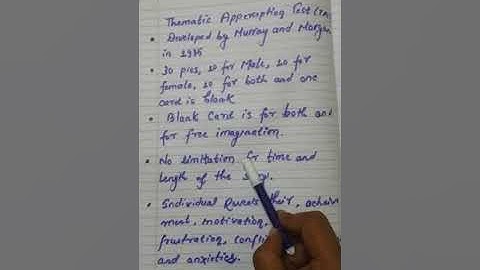 Thematic Apperception Test (TA
Developed by Murray and Morgan
in 1935
30 pics, 10 for Male, 10 for
female, 10 for both and one
card is blank
Blank Card is for both and
for free imagination.
No limitation for time and
length of the
Individual their, achieve
ment, motivation,
frustration, confli
and anxieties.